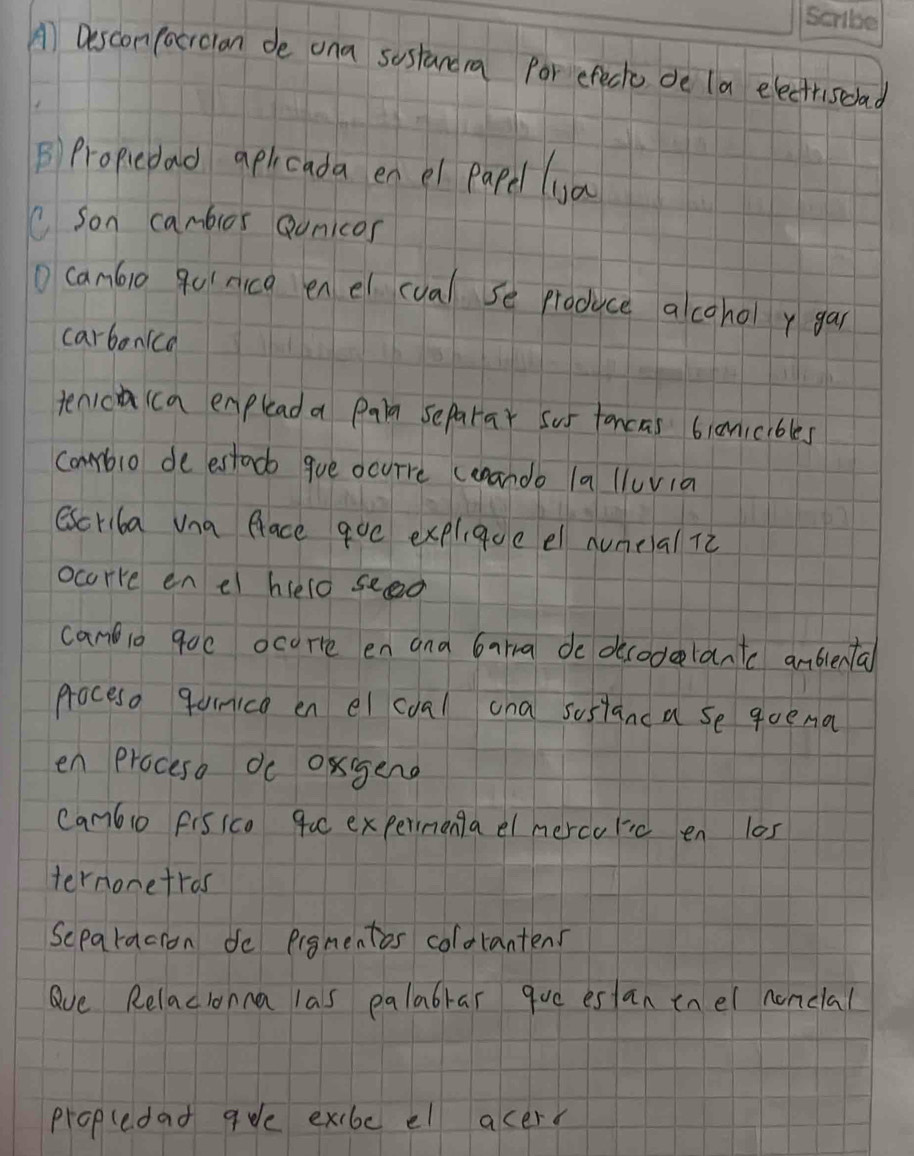 Scribe
A) Descompocician de una sustancia Por efecto de la electrisidad
B) Propiedad aplicada en el Papel lija
C son cambios Qumicos
D cambio quimico en el cual se produce alcohol y gas
carbonico
empleada Para separar sus tancias
cambio de estado que ocurre cuando la lluvia
escriba una frace que explique el numeral 12
ocurre en el hielo seco
cambio que ocurre en una barra de desodorante ambiental
proceso quimico en el cual una sustancia se quema
en proceso de oxigeno
cambio fisico que experimenta el mercurio en los
termonetros
Separacion de pigmentos colorantens
Que Relacionna las palabras que estan en el
propiedad que exibe el acero